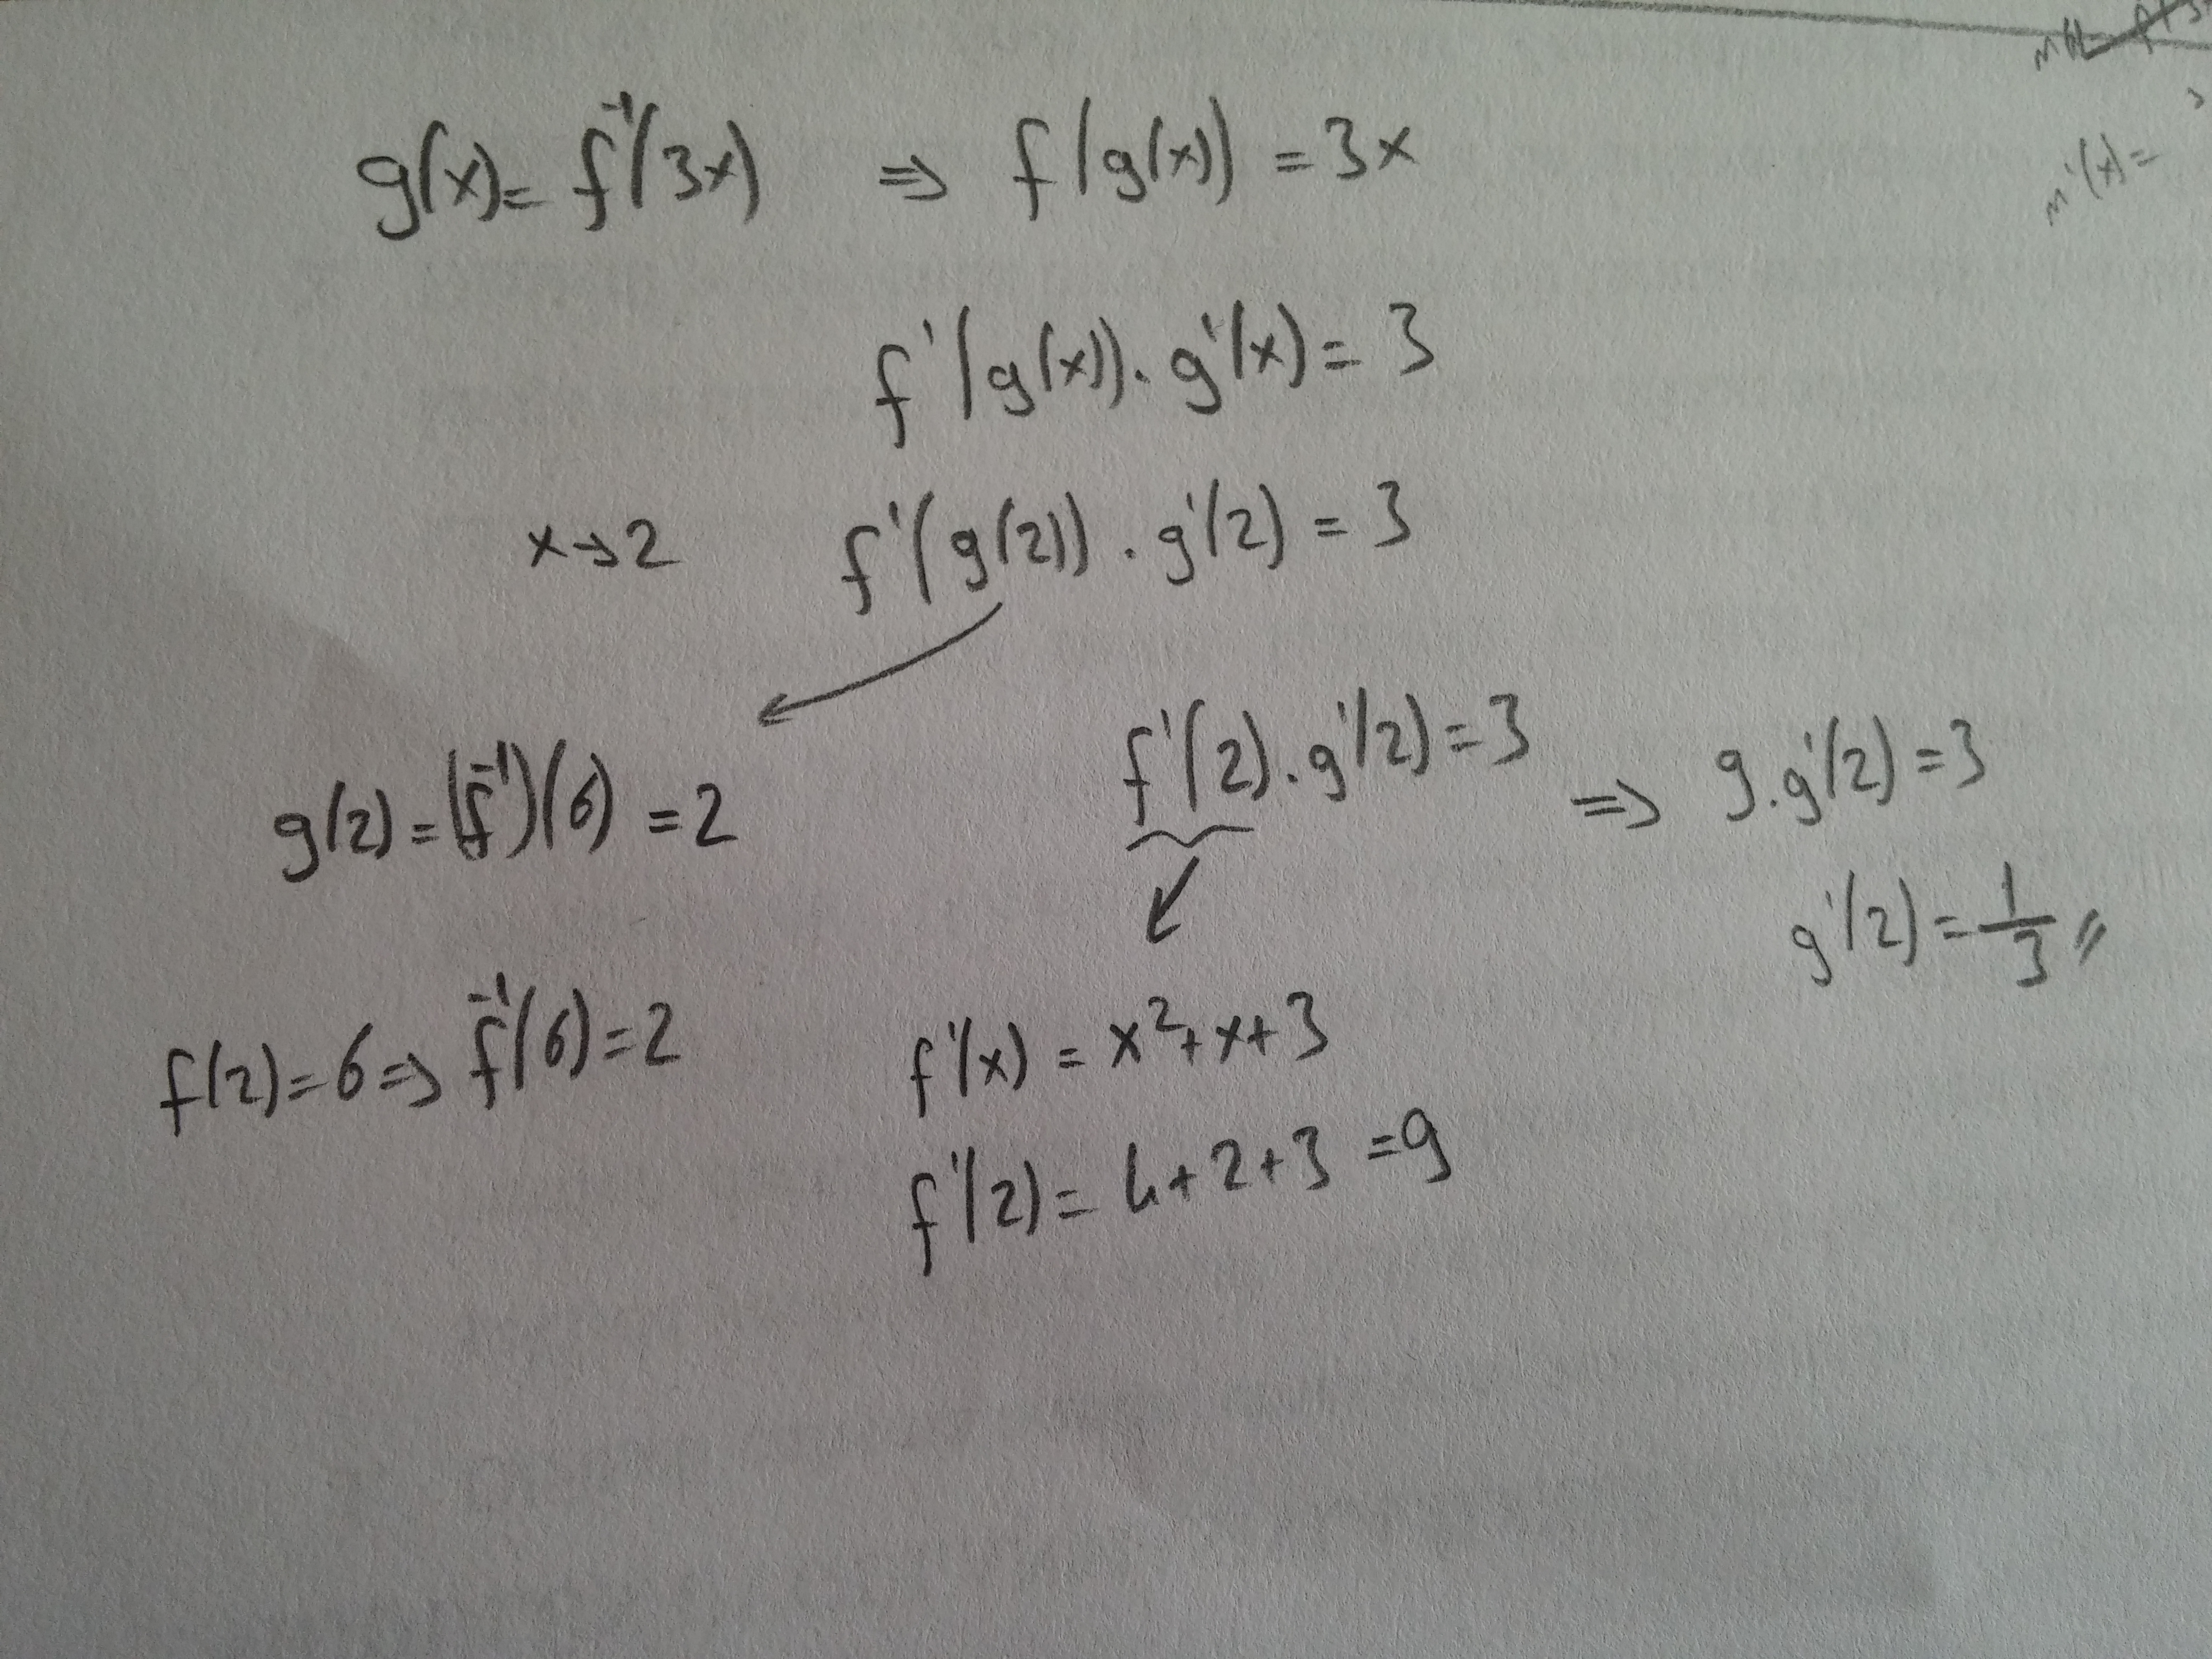 g(x) = f⁻¹(3x) ⇒ f(g(x)) = 3x
f'(g(x)) . g'(x) = 3
x→2 f'(g(2)) . g'(2) = 3
g(2) = (f⁻¹)(6) = 2
f'(2) . g'(2) = 3 ⇒ 9 . g'(2) = 3
g'(2) = 1/3 //
f(2) = 6 ⇒ f⁻¹(6) = 2
f'(x) = x² + x + 3
f'(2) = 4 + 2 + 3 = 9
m'(x) =